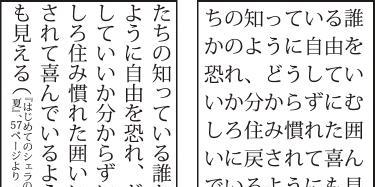 たちの知っている誰か
ように自由を恐れ、ど
していいか分からずに
しろ住み慣れた囲い
されて喜んでいるよう
も見える（『はじめてのシェラの
夏』、57ページより
ちの知っている誰
かのように自由を
恐れ、どうしてい
いか分からずにむ
しろ住み慣れた囲
いに戻されて喜ん
でいるようにも見